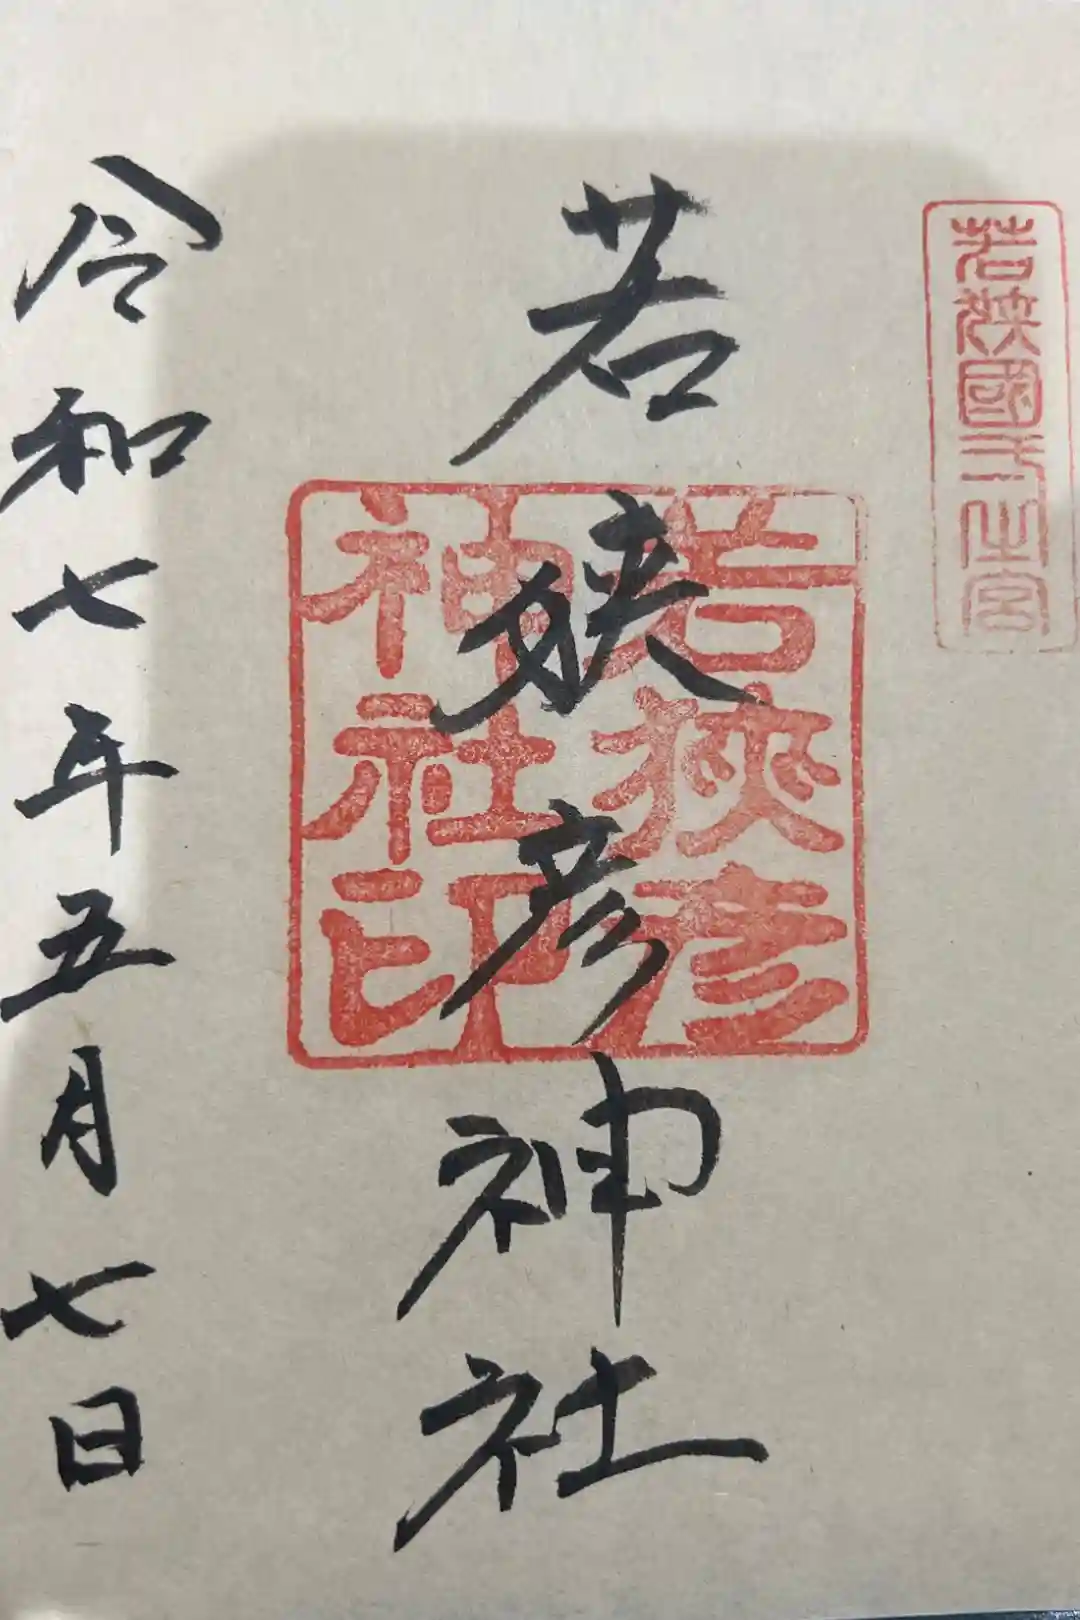 若狭國一之宮
若狭彦神社
若狭彦
神社印
令和七年五月七日